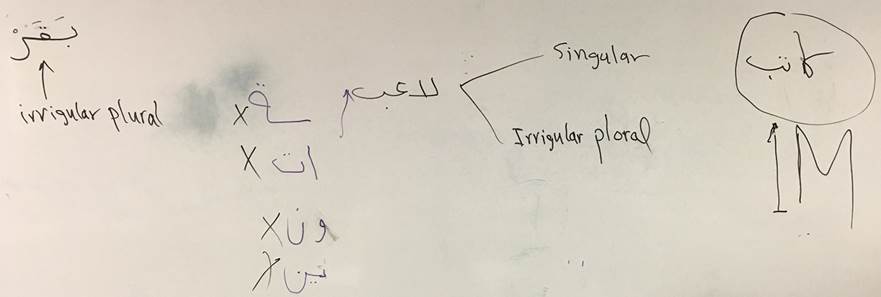 بَقَرْ
irrigular plural
لاعب
Singular
Irrigular ploral
ـة X
ات X
ون X
ين X
كاتب
1M